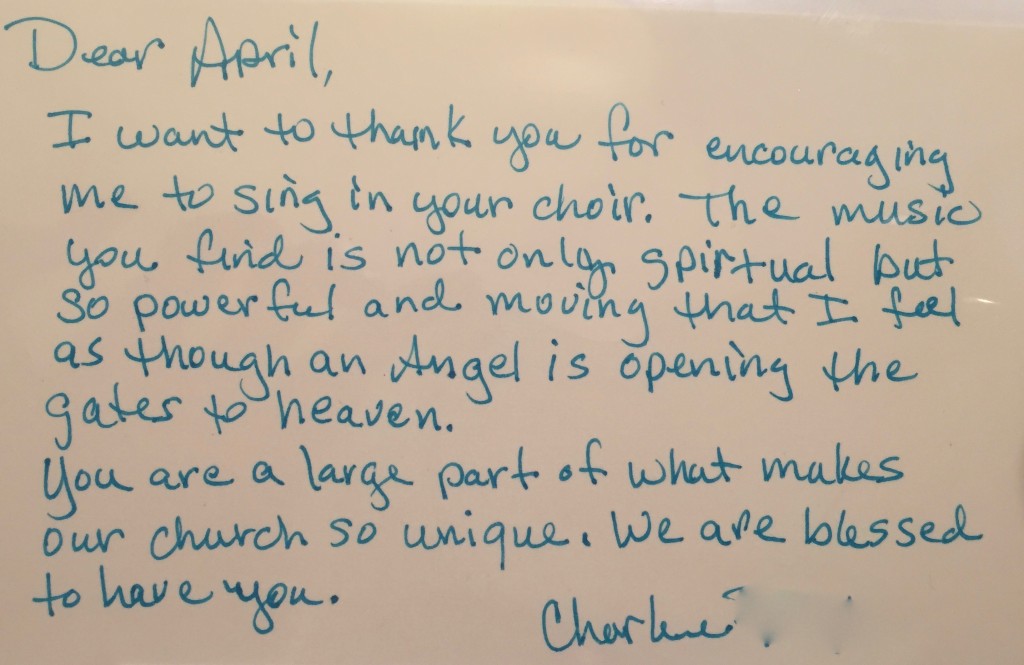 Dear April,
I want to thank you for encouraging
me to sing in your choir. The music
you find is not only spirtual but
so powerful and moving that I feel
as though an Angel is opening the
gates to heaven.
You are a large part of what makes
our church so unique. We are blessed
to have you.